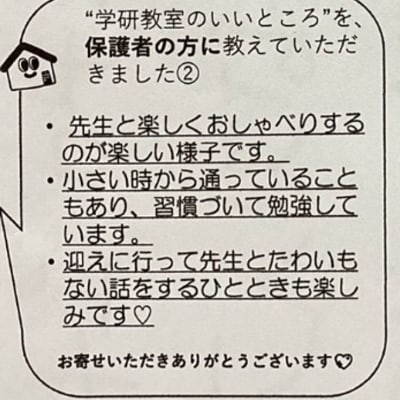 “学研教室のいいところ”を、
保護者の方に教えていただ
きました②
・ 先生と楽しくおしゃべりする
のが楽しい様子です。
・小さい時から通っていること
もあり、習慣づいて勉強して
います。
・迎えに行って先生とたわいも
ない話をするひとときも楽し
みです♡
お寄せいただきありがとうございます♡